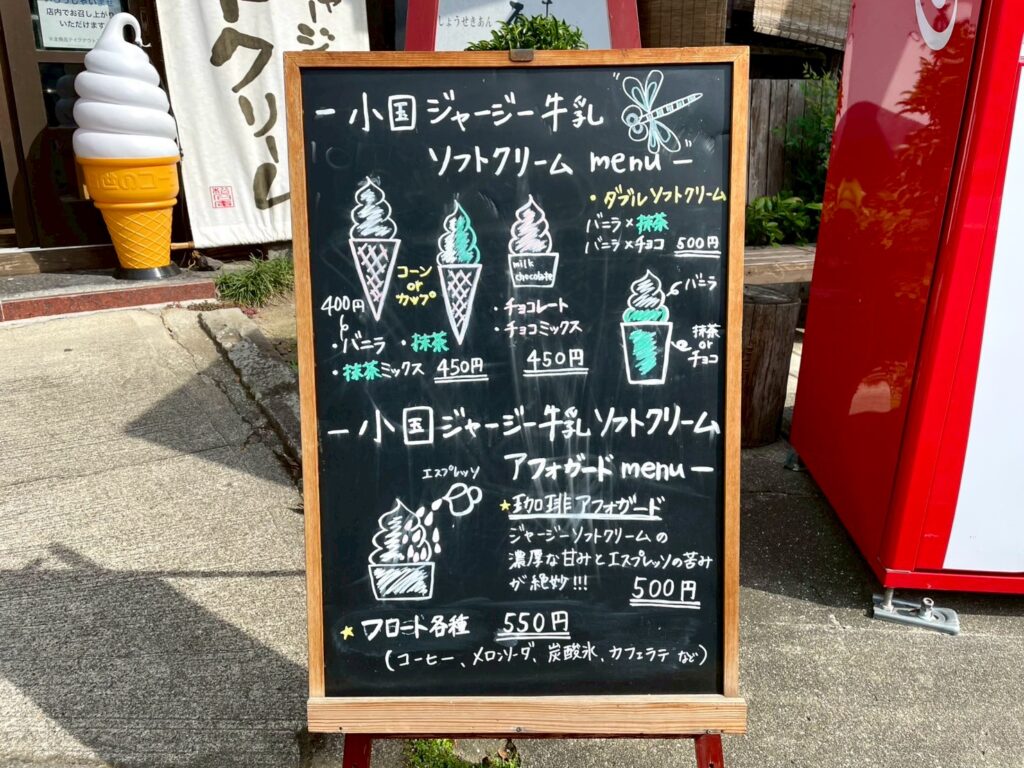 店内でお召し上がり
いただけます
ジャージー
クリーム
しょうせきあん
ー小国ジャージー牛乳
ソフトクリーム menuー
・ダブルソフトクリーム
バニラ×抹茶
バニラ×チョコ 500円
コーン
or
カップ
milk
chocolate
400円
・バニラ ・抹茶
・抹茶ミックス 450円
・チョコレート
・チョコミックス
450円
バニラ
抹茶
or
チョコ
ー小国ジャージー牛乳ソフトクリーム
アフォガードmenuー
エスプレッソ
★珈琲アフォガード
ジャージーソフトクリームの
濃厚な甘みとエスプレッソの苦み
が絶妙!!!
500円
★フロート各種 550円
(コーヒー、メロンソーダ、炭酸氷、カフェラテなど)